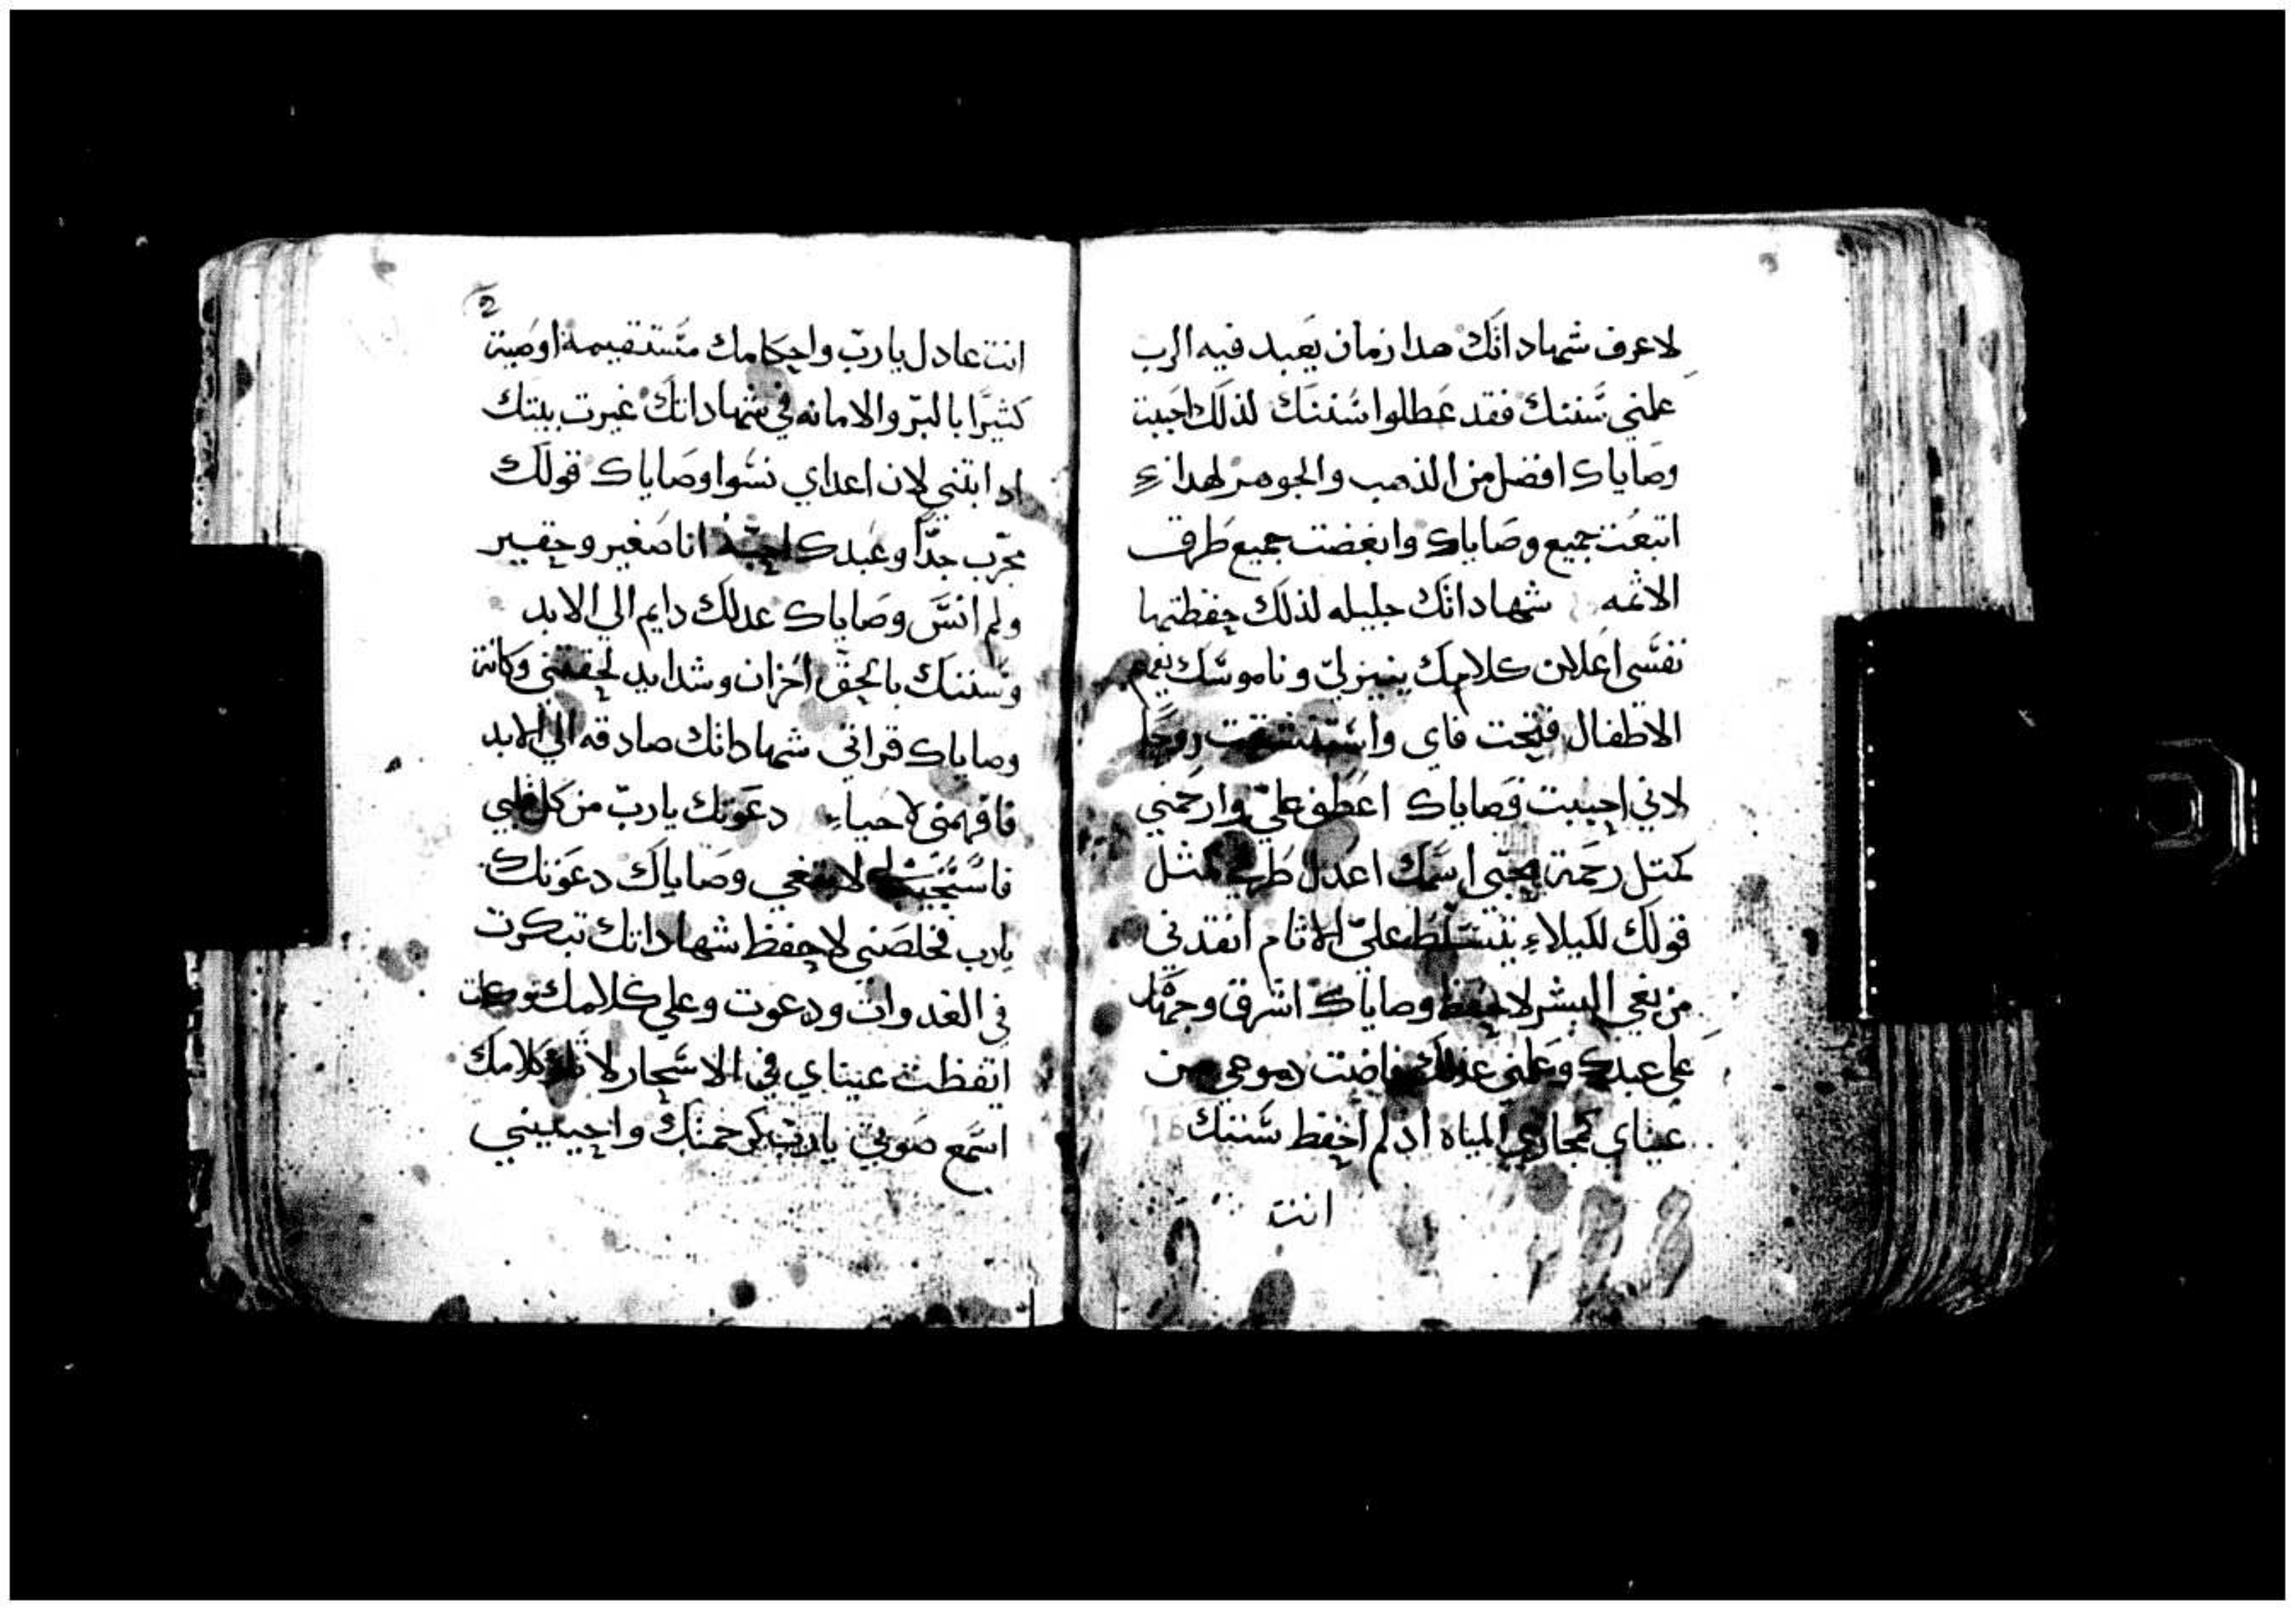 لاعرف شهاداتك هدا زمان يعبد فيه الرب
علمني سننك فقد عطلوا سننك لذلك احببت
وصاياك افضل من الذهب والجوهر لهدا
اتبعت جميع وصاياك وابغضت جميع طرق
الاثمه شهاداتك جليله لذلك حفظتها
نفسي اعلان كلامك ينير لي وناموسك يفهم
الاطفال فتحت فاي واستنشقت روحا
لاني احببت وصاياك اعطف علي وارحمني
كمتل رحمة محبي اسمك اعدل طرقي كمثل
قولك لكيلاء يتسلط علي الاثام انقدني
من بغي البشر لاحفظ وصاياك اشرق وجهك
علي عبدك وعلمني عدلك فاضت دموعي من
عيناي كمجاري المياه اد لم احفظ سننك
انت
2
انت عادل يارب واحكامك مستقيمة اوصيت
كثيرا بالبر والامانه في شهاداتك غيرت بيتك
ادابتني لان اعداي نسوا وصاياك قولك
مجرب جدا وعبدك احبه انا صغير وحقير
ولم انس وصاياك عدلك دايم الي الابد
وسننك بالحق احزان وشدايد لحقتني وكانت
وصاياك قراتي شهاداتك صادقه الي الابد
فافهمني لاحياء دعوتك يارب من كل قلبي
فاستجيب لي لابتغي وصاياك دعوتك
يارب فخلصني لاحفظ شهاداتك تبكرت
في الغدوات ودعوت وعلي كلامك توكلت
اتقظت عيناي في الاسحار لاتلو كلامك
اسمع صوتي يارب كرحمتك واحييني